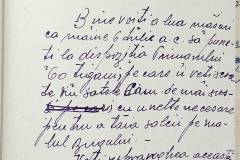 Bine voiți a lua măsuri
ca maine 6 Iulie a.c. să pune-
ti la dispoziția Primarului
60 tigani, pe care ii veti scoa-
te din satele Cam de mai sus
cu unelte necesare
pentru a tăia salcii pe ma-
lul Bugului. -
veghea aceasta